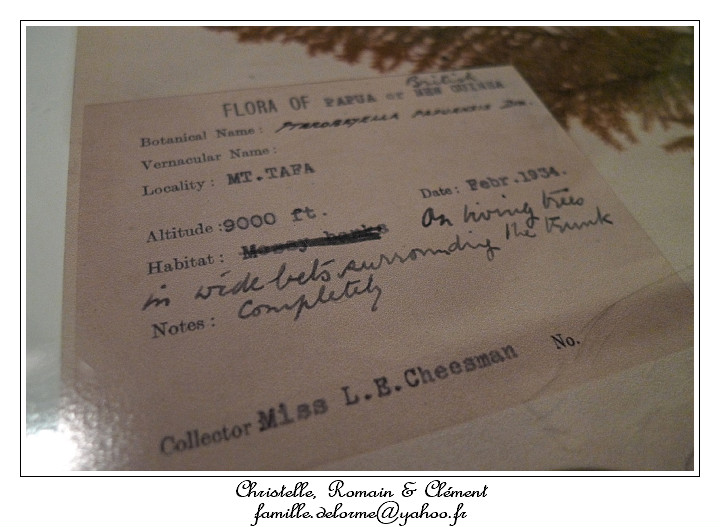 British
FLORA OF PAPUA or NEW GUINEA
Botanical Name: PTEROBRYELLA PAPUENSIS
Vernacular Name:
Locality: MT.TAFA
Altitude: 9000 ft. Date: Febr.1934.
Habitat: Mossy banks On living trees
in wide belts surrounding the trunk
Notes: completely
Collector Miss L.E.Cheesman No.
Christelle, Romain & Clément
famille.delorme@yahoo.fr